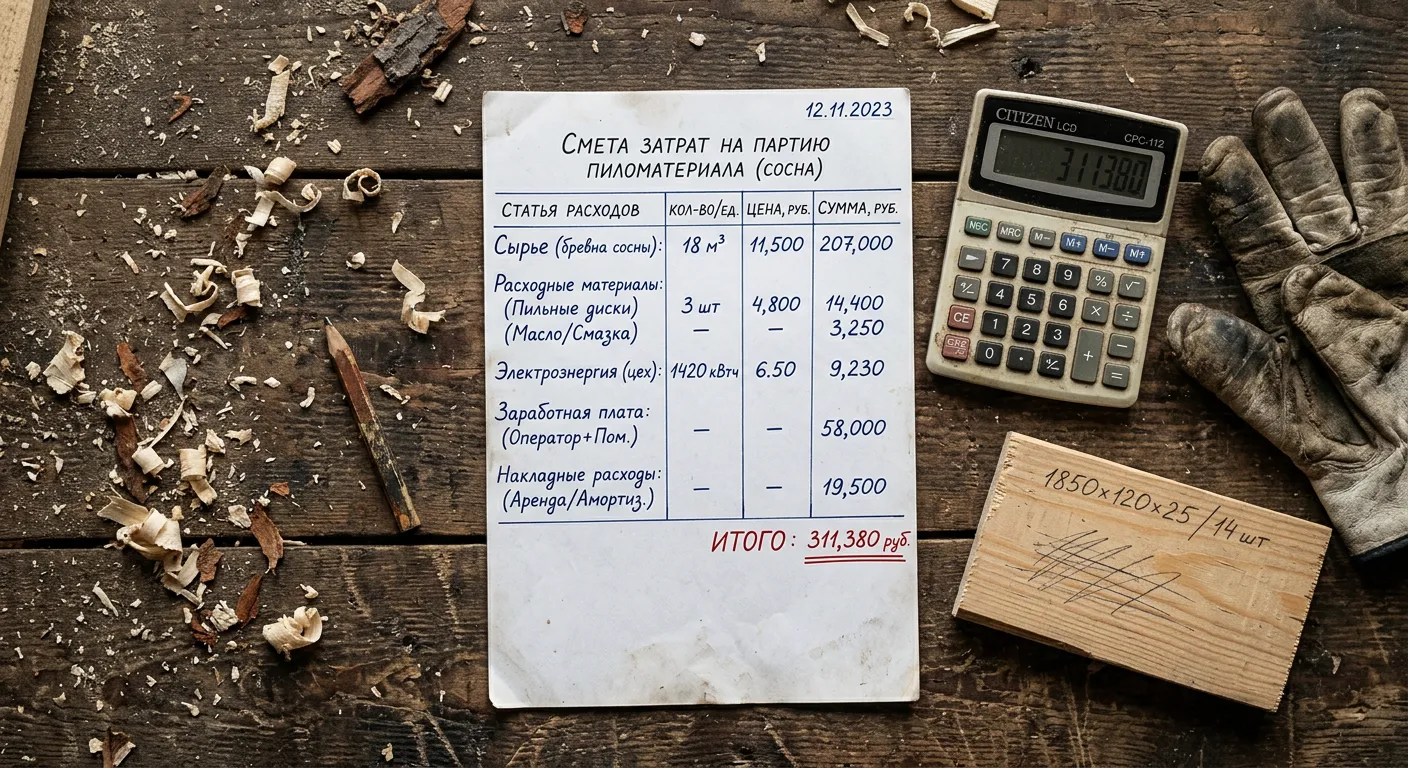 12.11.2023
СМЕТА ЗАТРАТ НА ПАРТИЮ
ПИЛОМАТЕРИАЛА (СОСНА)
СТАТЬЯ РАСХОДОВ КОЛ-ВО/ЕД. ЦЕНА, РУБ. СУММА, РУБ.
Сырье (бревна сосны): 18 м³ 11,500 207,000
Расходные материалы:
(Пильные диски) 3 шт 4,800 14,400
(Масло/Смазка) — — 3,250
Электроэнергия (цех): 1420 кВтч 6.50 9,230
Заработная плата:
(Оператор+Пом.) — — 58,000
Накладные расходы:
(Аренда/Амортиз.) — — 19,500
ИТОГО: 311,380 руб.
CITIZEN LCD
CPC-112
311380
MRC M- M+ M- M+
7 8 9 % √
4 5 6 × ÷
CE 1 2 3 −
0 · +/- + =
1850×120×25/14 шт